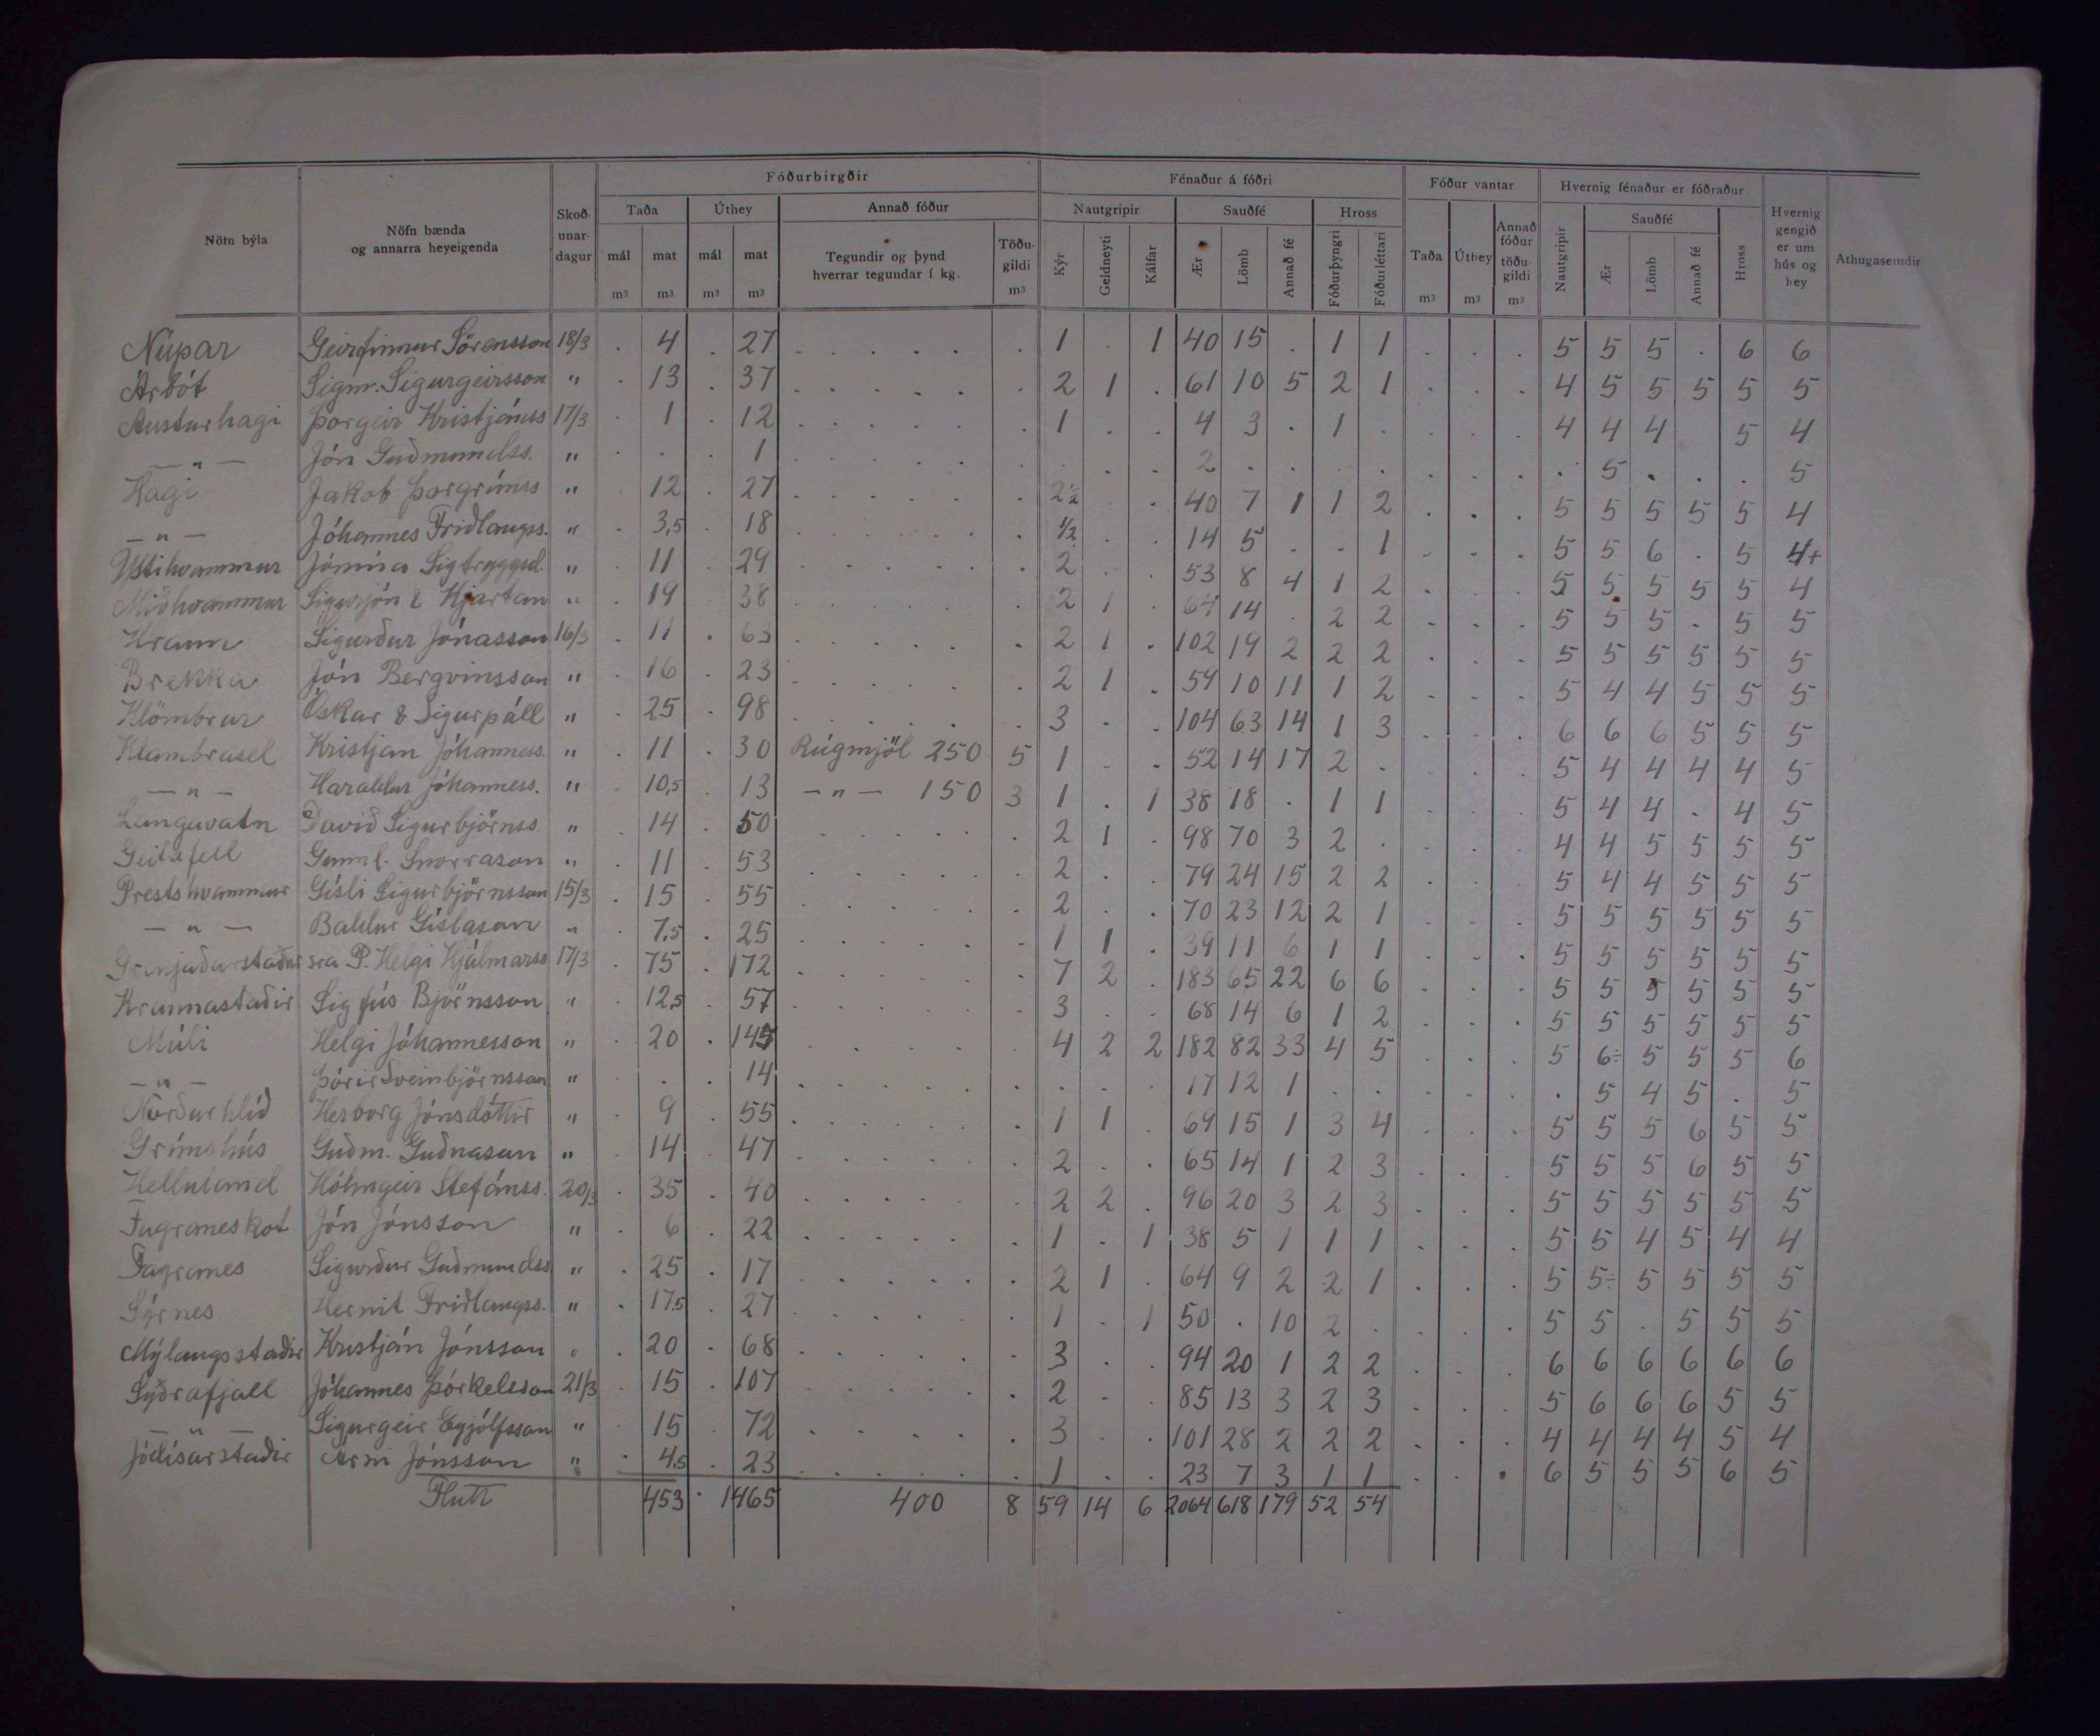 Fóðurbirgðir Fénaður á fóðri Fóður vantar Hvernig fénaður er fóðraður
Nöfn býla Nöfn bænda og annarra heyeigenda Skoð-unar-dagur Taða Úthey Annað fóður Nautgripir Sauðfé Hross Taða Úthey Annað fóður töðu-gildi Nautgripir Sauðfé Hross Hvernig gengið er um hús og hey Athugasemdir
mál mat mál mat Tegundir og þynd hverrar tegundar í kg. Töðu-gildi Kýr Geldneyti Kálfar Ær Lömb Annað fé Fóðurþyngri Fóðurléttari Ær Lömb Annað fé
m³ m³ m³ m³ m³ m³ m³ m³
Núpar Geirfinnur Sörensson 18/3 . 4 . 27 . . . . . . 1 . 1 40 15 . 1 1 . . . 5 5 5 . 6 6
Árbót Sigm. Sigurgeirsson " . 13 . 37 . . . . . . 2 1 . 61 10 5 2 1 . . . 4 5 5 5 5 5
Austurhagi Þorgeir Kristjánss 17/3 . 1 . 12 . . . . . . 1 . . 4 3 . 1 . . . . 4 4 4 5 4
— " — Jón Guðmundss. " . . . 1 . . . . . . . . . 2 . . . . . . . . 5 . . . 5
Hagi Jakob Þorgrímss " . 12 . 27 . . . . . . 2½ . . 40 7 1 1 2 . . . 5 5 5 5 5 4
— " — Jóhannes Friðlaugs. " . 3,5 . 18 . . . . . . ½ . . 14 5 . . 1 . . . 5 5 6 . 5 4+
Ystihvammur Jónína Sigtryggsd. " . 11 . 29 . . . . . . 2 . . 53 8 4 1 2 . . . 5 5 5 5 5 4
Miðhvammur Sigurjón & Kjartan " . 19 38 . . . . . . 2 1 . 64 14 . 2 2 . . . 5 5 5 . 5 5
Hraun Sigurður Jónasson 16/3 . 11 . 63 . . . . . . 2 1 . 102 19 2 2 2 . . . 5 5 5 5 5 5
Brekka Jón Bergvinsson " . 16 . 23 . . . . . . 2 1 . 59 10 11 1 2 . . . 5 4 4 5 5 5
Klömbrur Óskar & Sigurpáll " . 25 . 98 . . . . . . 3 . . 104 63 14 1 3 . . . 6 6 6 5 5 5
Klambrasel Kristjan Jóhanness. " . 11 . 30 Rúgmjöl 250 5 1 . . 52 14 17 2 . . . . 5 4 4 4 4 5
— " — Haraldur Jóhanness. " . 10,5 . 13 — " — 150 3 1 . 1 38 18 . 1 1 . . . 5 4 4 . 4 5
Langavatn Davíð Sigurbjörnss " . 14 . 50 . . . . . . 2 1 . 98 70 3 2 . . . . 4 4 5 5 5 5
Geitafell Gunnl. Snorrason " . 11 . 53 . . . . . . 2 . . 79 24 15 2 2 . . . 5 4 4 5 5 5
Prestshvammur Gísli Sigurbjörnsson 15/3 . 15 . 55 . . . . . . 2 . . 70 23 12 2 1 . . . 5 5 5 5 5 5
— " — Baldur Gíslason " . 7,5 . 25 . . . . . . 1 1 . 39 11 6 1 1 . . . 5 5 5 5 5 5
Grenjaðarstaður sra P. Helgi Hjálmarss 17/3 . 75 . 172 . . . . . . 7 2 . 183 65 22 6 6 . . . 5 5 5 5 5 5
Hraunastaðir Sigfús Björnsson " . 12,5 . 57 . . . . . . 3 . . 68 14 6 1 2 . . . 5 5 5 5 5 5
Múli Helgi Jóhannesson " . 20 . 145 . . . . . . 4 2 2 182 82 33 4 5 . . . 5 6÷ 5 5 5 6
— " — Þórir Sveinbjörnsson " . . . 14 . . . . . . . . . 17 12 1 . . . . . . 5 4 5 . 5
Norðurhlíð Herborg Jónsdóttir " . 9 . 55 . . . . . . 1 1 . 69 15 1 3 4 . . . 5 5 5 6 5 5
Grímshús Guðm. Guðnason " . 14 . 47 . . . . . . 2 . . 65 14 1 2 3 . . . 5 5 5 6 5 5
Helluland Hólmgeir Stefánss. 20/3 . 35 . 40 . . . . . . 2 2 . 96 20 3 2 3 . . . 5 5 5 5 5 5
Fagraneskot Jón Jónsson " . 6 . 22 . . . . . . 1 . 1 38 5 1 1 1 . . . 5 5 4 5 4 4
Fagranes Sigurður Guðmundss " . 25 . 17 . . . . . . 2 1 . 64 9 2 2 1 . . . 5 5÷ 5 5 5 5
Sýrnes Hermit Friðlaugss. " . 17,5 . 27 . . . . . . 1 . 1 50 . 10 2 . . . . 5 5 . 5 5 5
Mýlaugsstaðir Kristján Jónsson " . 20 . 68 . . . . . . 3 . . 94 20 1 2 2 . . . 6 6 6 6 6 6
Sýðrafjall Jóhannes Þórkelsson 21/3 . 15 . 107 . . . . . . 2 . . 85 13 3 2 3 . . . 5 6 6 6 5 5
— " — Sigurgeir Eyjólfsson " . 15 . 72 . . . . . . 3 . . 101 28 2 2 2 . . . 4 4 4 4 5 4
Jódísarstaðir Árni Jónsson " . 4,5 . 23 . . . . . . 1 . . 23 7 3 1 1 . . . 6 5 5 5 6 5
Flutt 453 . 1465 400 8 59 14 6 2064 618 179 52 54